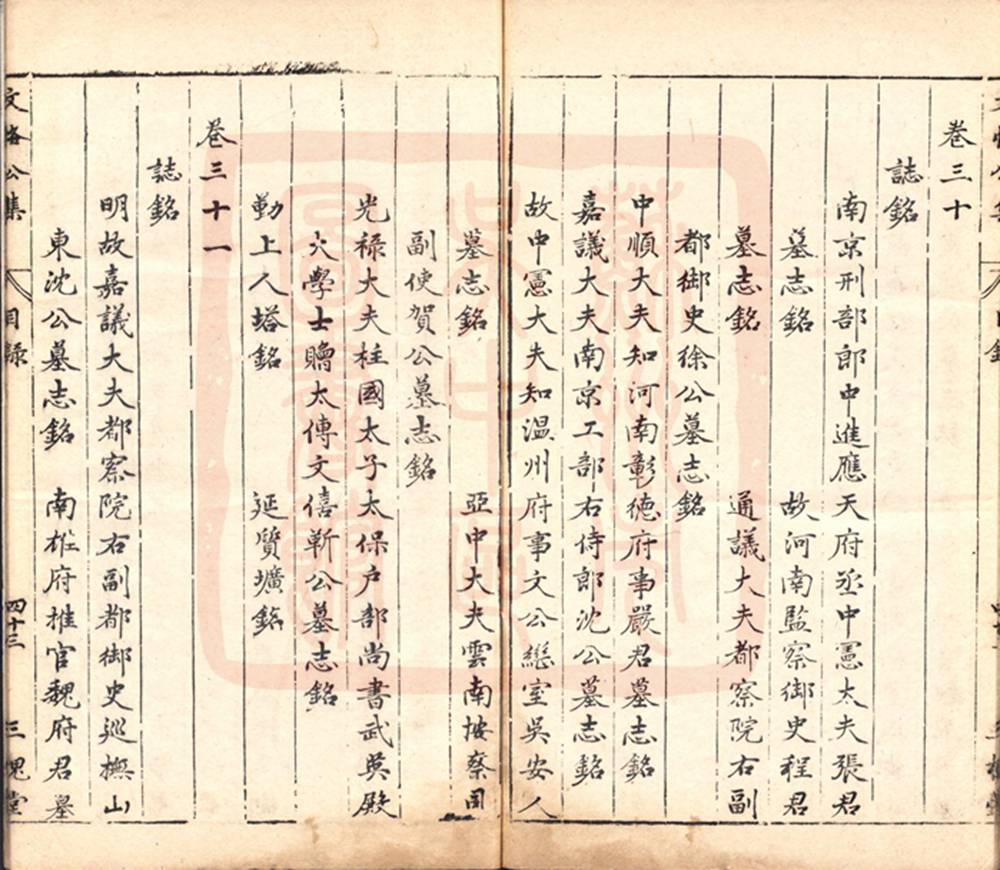 卷三十
誌銘
南京刑部郎中進應天府丞中憲大夫張君
墓志銘 故河南監察御史程君
墓志銘 通議大夫都察院右副
都御史徐公墓志銘
中順大夫知河南彰德府事嚴君墓志銘
嘉議大夫南京工部右侍郎沈公墓志銘
故中憲大夫知温州府事文公繼室吳安人
墓志銘 亞中大夫雲南按察司
副使賀公墓志銘
光祿大夫柱國太子太保户部尚書武英殿
大學士贈太傅文僖靳公墓志銘
勤上人塔銘 延質壙銘
卷三十一
誌銘
明故嘉議大夫都察院右副都御史巡撫山
東沈公墓志銘 南雄府推官魏府君墓
文恪公集 目錄 四十三 三槐堂